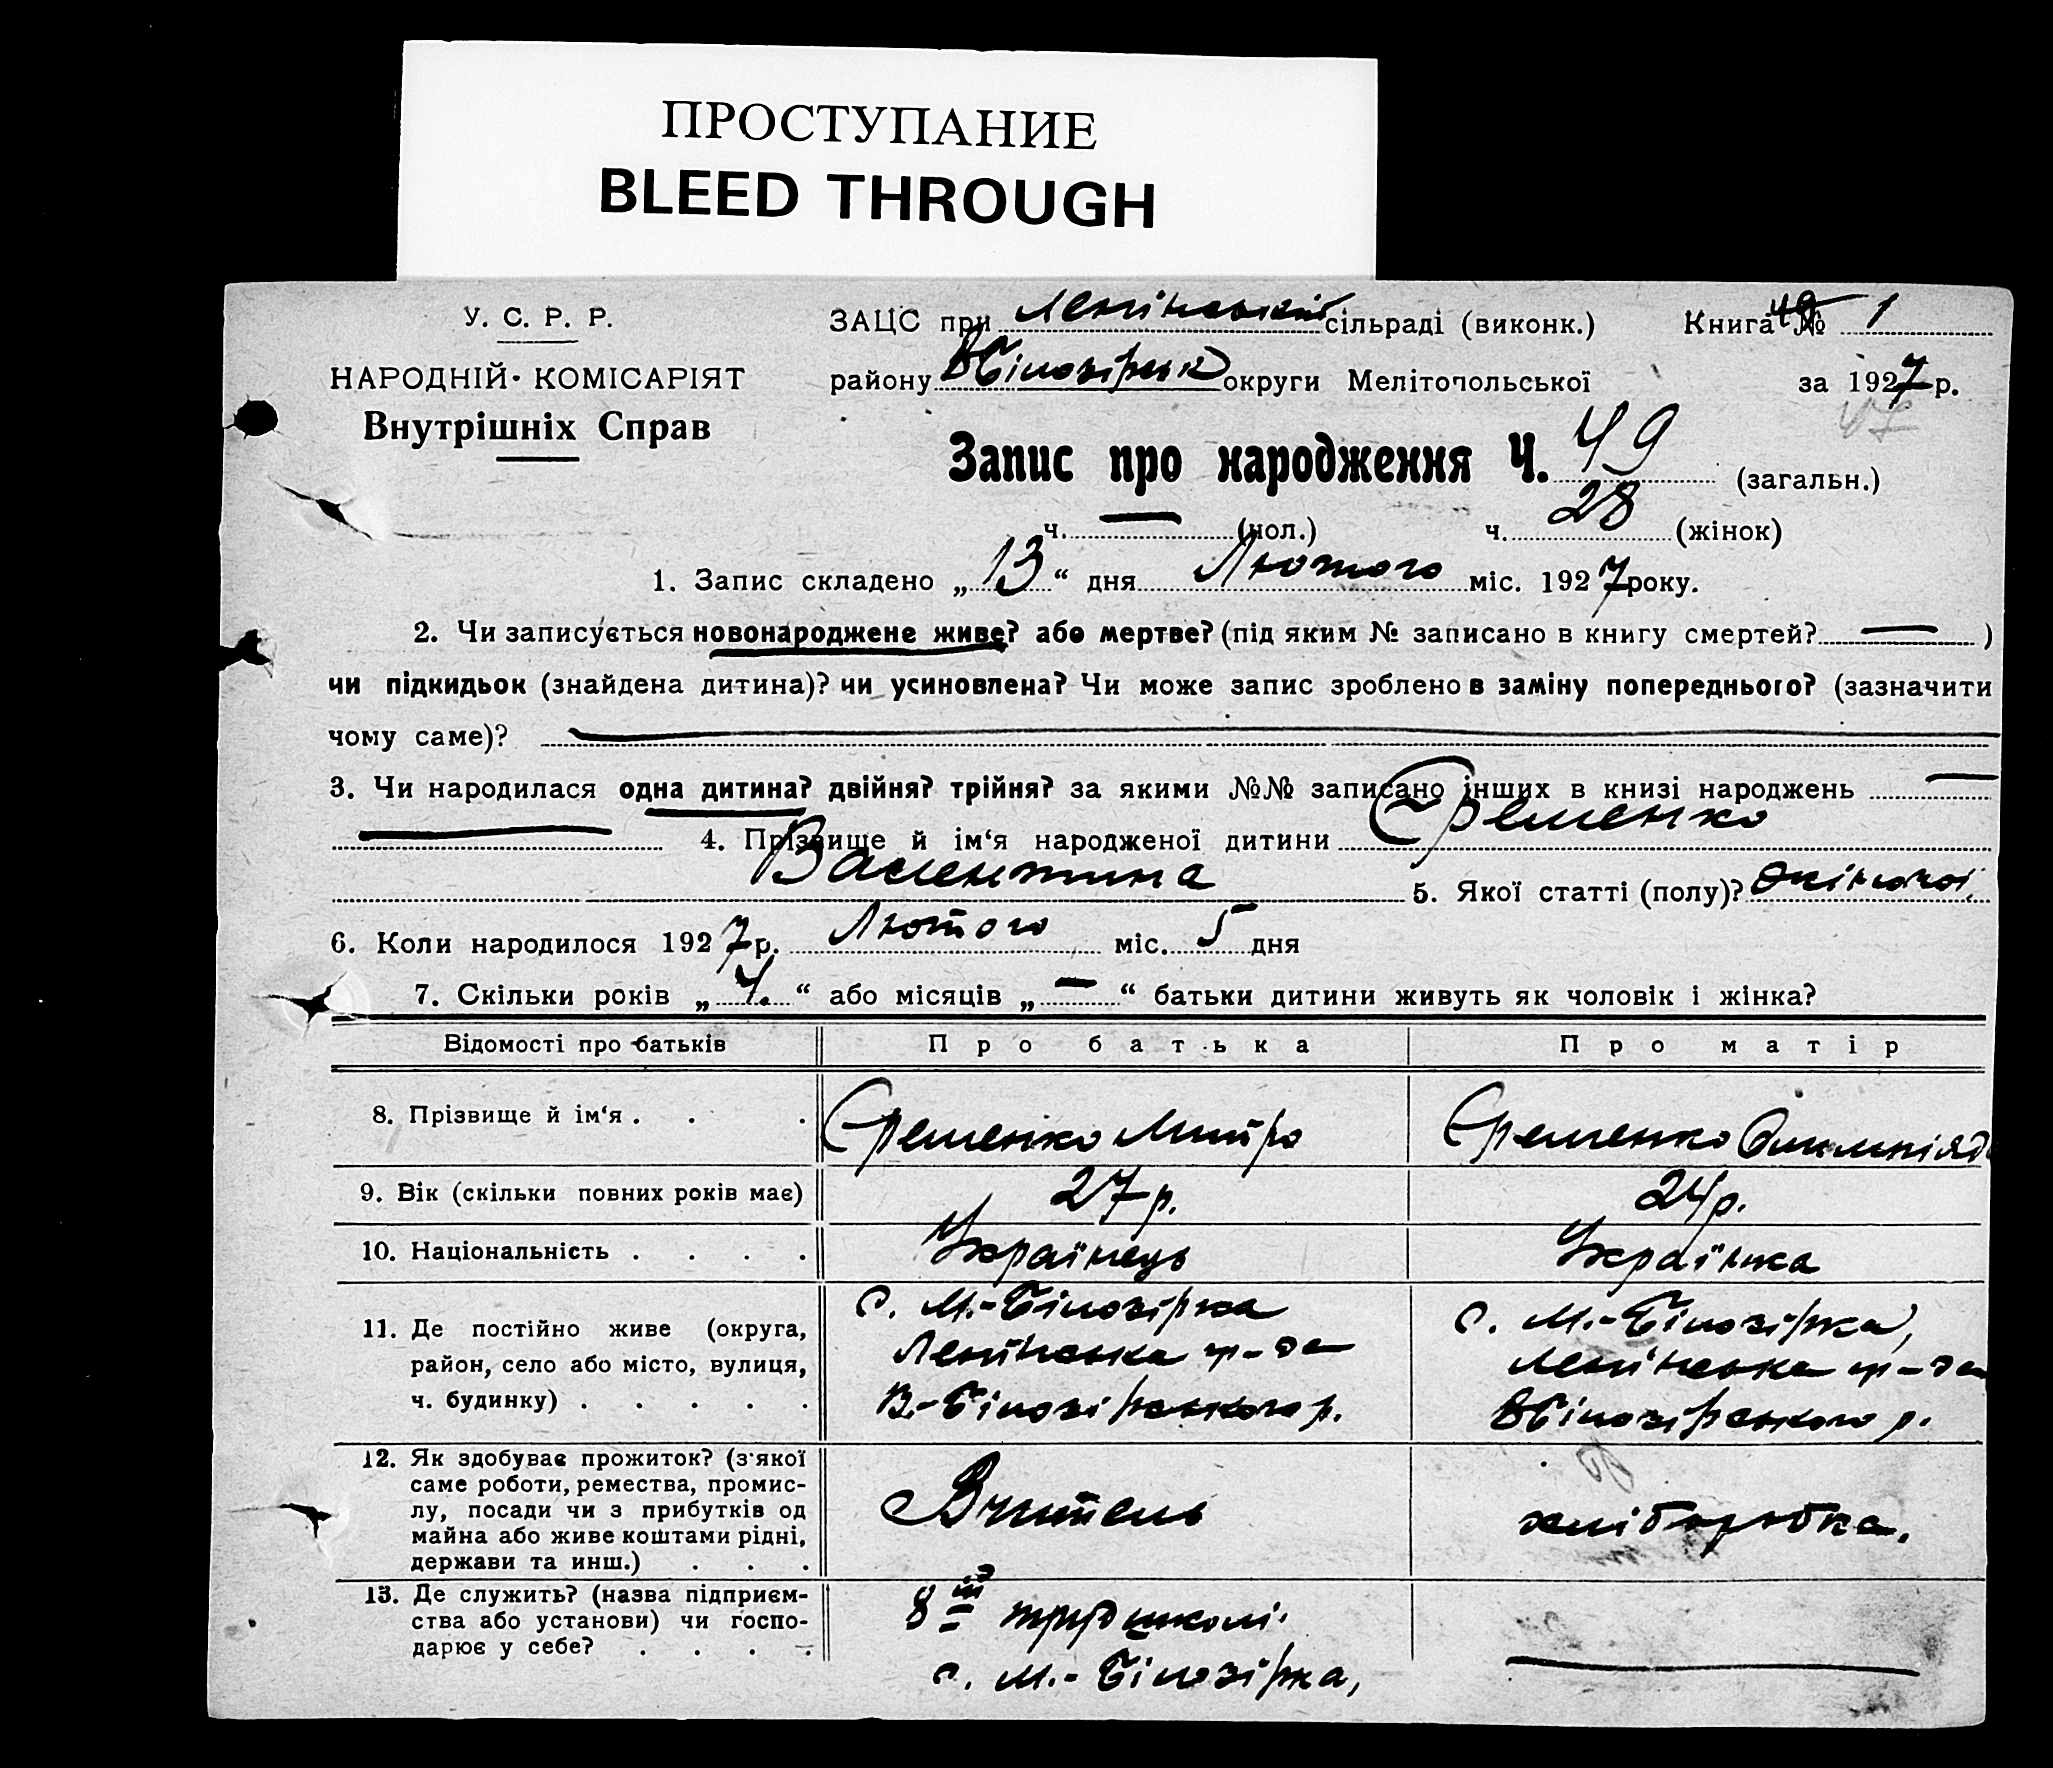 ПРОСТУПАНИЕ
BLEED THROUGH
У. С. Р. Р.
НАРОДНІЙ КОМІСАРІЯТ
Внутрішніх Справ
ЗАЦС при Ленінській сільраді (виконк.) Книга № 1
району ВБілозірськ округи Мелітопольської за 1927 р.
47
Запис про народження Ч. 49 (загальн.)
ч. — (чол.) ч. 28 (жінок)
1. Запис складено „ 13 “ дня Лютого міс. 1927 року.
2. Чи записується новонароджене живе? або мертве? (під яким № записано в книгу смертей? — )
чи підкидьок (знайдена дитина)? чи усиновлена? Чи може запис зроблено в заміну попереднього? (зазначити
чому саме)?
3. Чи народилася одна дитина? двійня? трійня? за якими №№ записано інших в книзі народжень —
— 4. Прізвище й ім‘я народженої дитини Єременко
Валентина 5. Якої статті (полу)? жіночої
6. Коли народилося 1927 р. Лютого міс. 5 дня
7. Скільки років „ 4. “ або місяців „ — “ батьки дитини живуть як чоловік і жінка?
Відомості про батьків Про батька Про матір
8. Прізвище й ім‘я . . . Єременко Єременко Олимпіяд
9. Вік (скільки повних років має) 27 р. 24 р.
10. Національність . . . . Українець Українка
11. Де постійно живе (округа, район, село або місто, вулиця, ч. будинку) . . . . .
с. М.-Білозірка
Ленінська гр-да
В.-Білозірського р.
с. М.-Білозірка,
Ленінська гр-да
ВБілозірського р.
12. Як здобуває прожиток? (з'якої саме роботи, ремества, промислу, посади чи з прибутків од майна або живе коштами рідні, держави та инш.) . . .
Вчитель
хліборобка.
13. Де служить? (назва підприємства або установи) чи господарює у себе? . . . .
трудшколі
с. М.-Білозірка,